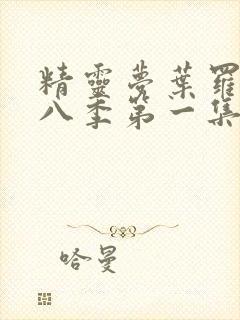 精靈夢葉羅
八季第一集
哈曼